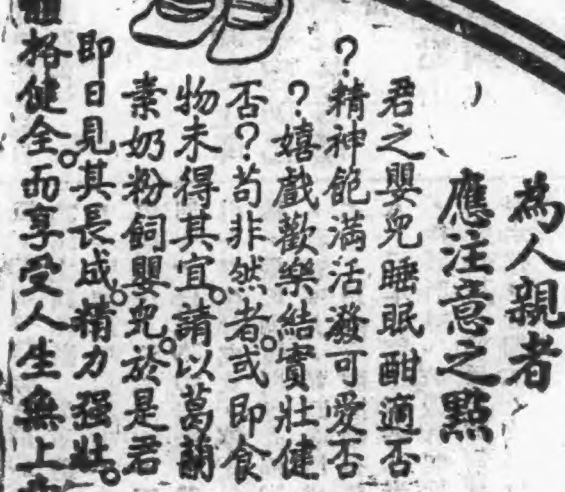 為人親者
應注意之點
君之嬰兒睡眠酣適否
？精神飽滿活潑可愛否
？嬉戲歡樂結實壯健
否？苟非然者。或即食
物未得其宜。請以葛蘭
素奶粉飼嬰兒。於是君
即日見其長成。精力强壯。
體格健全。而享受人生無上